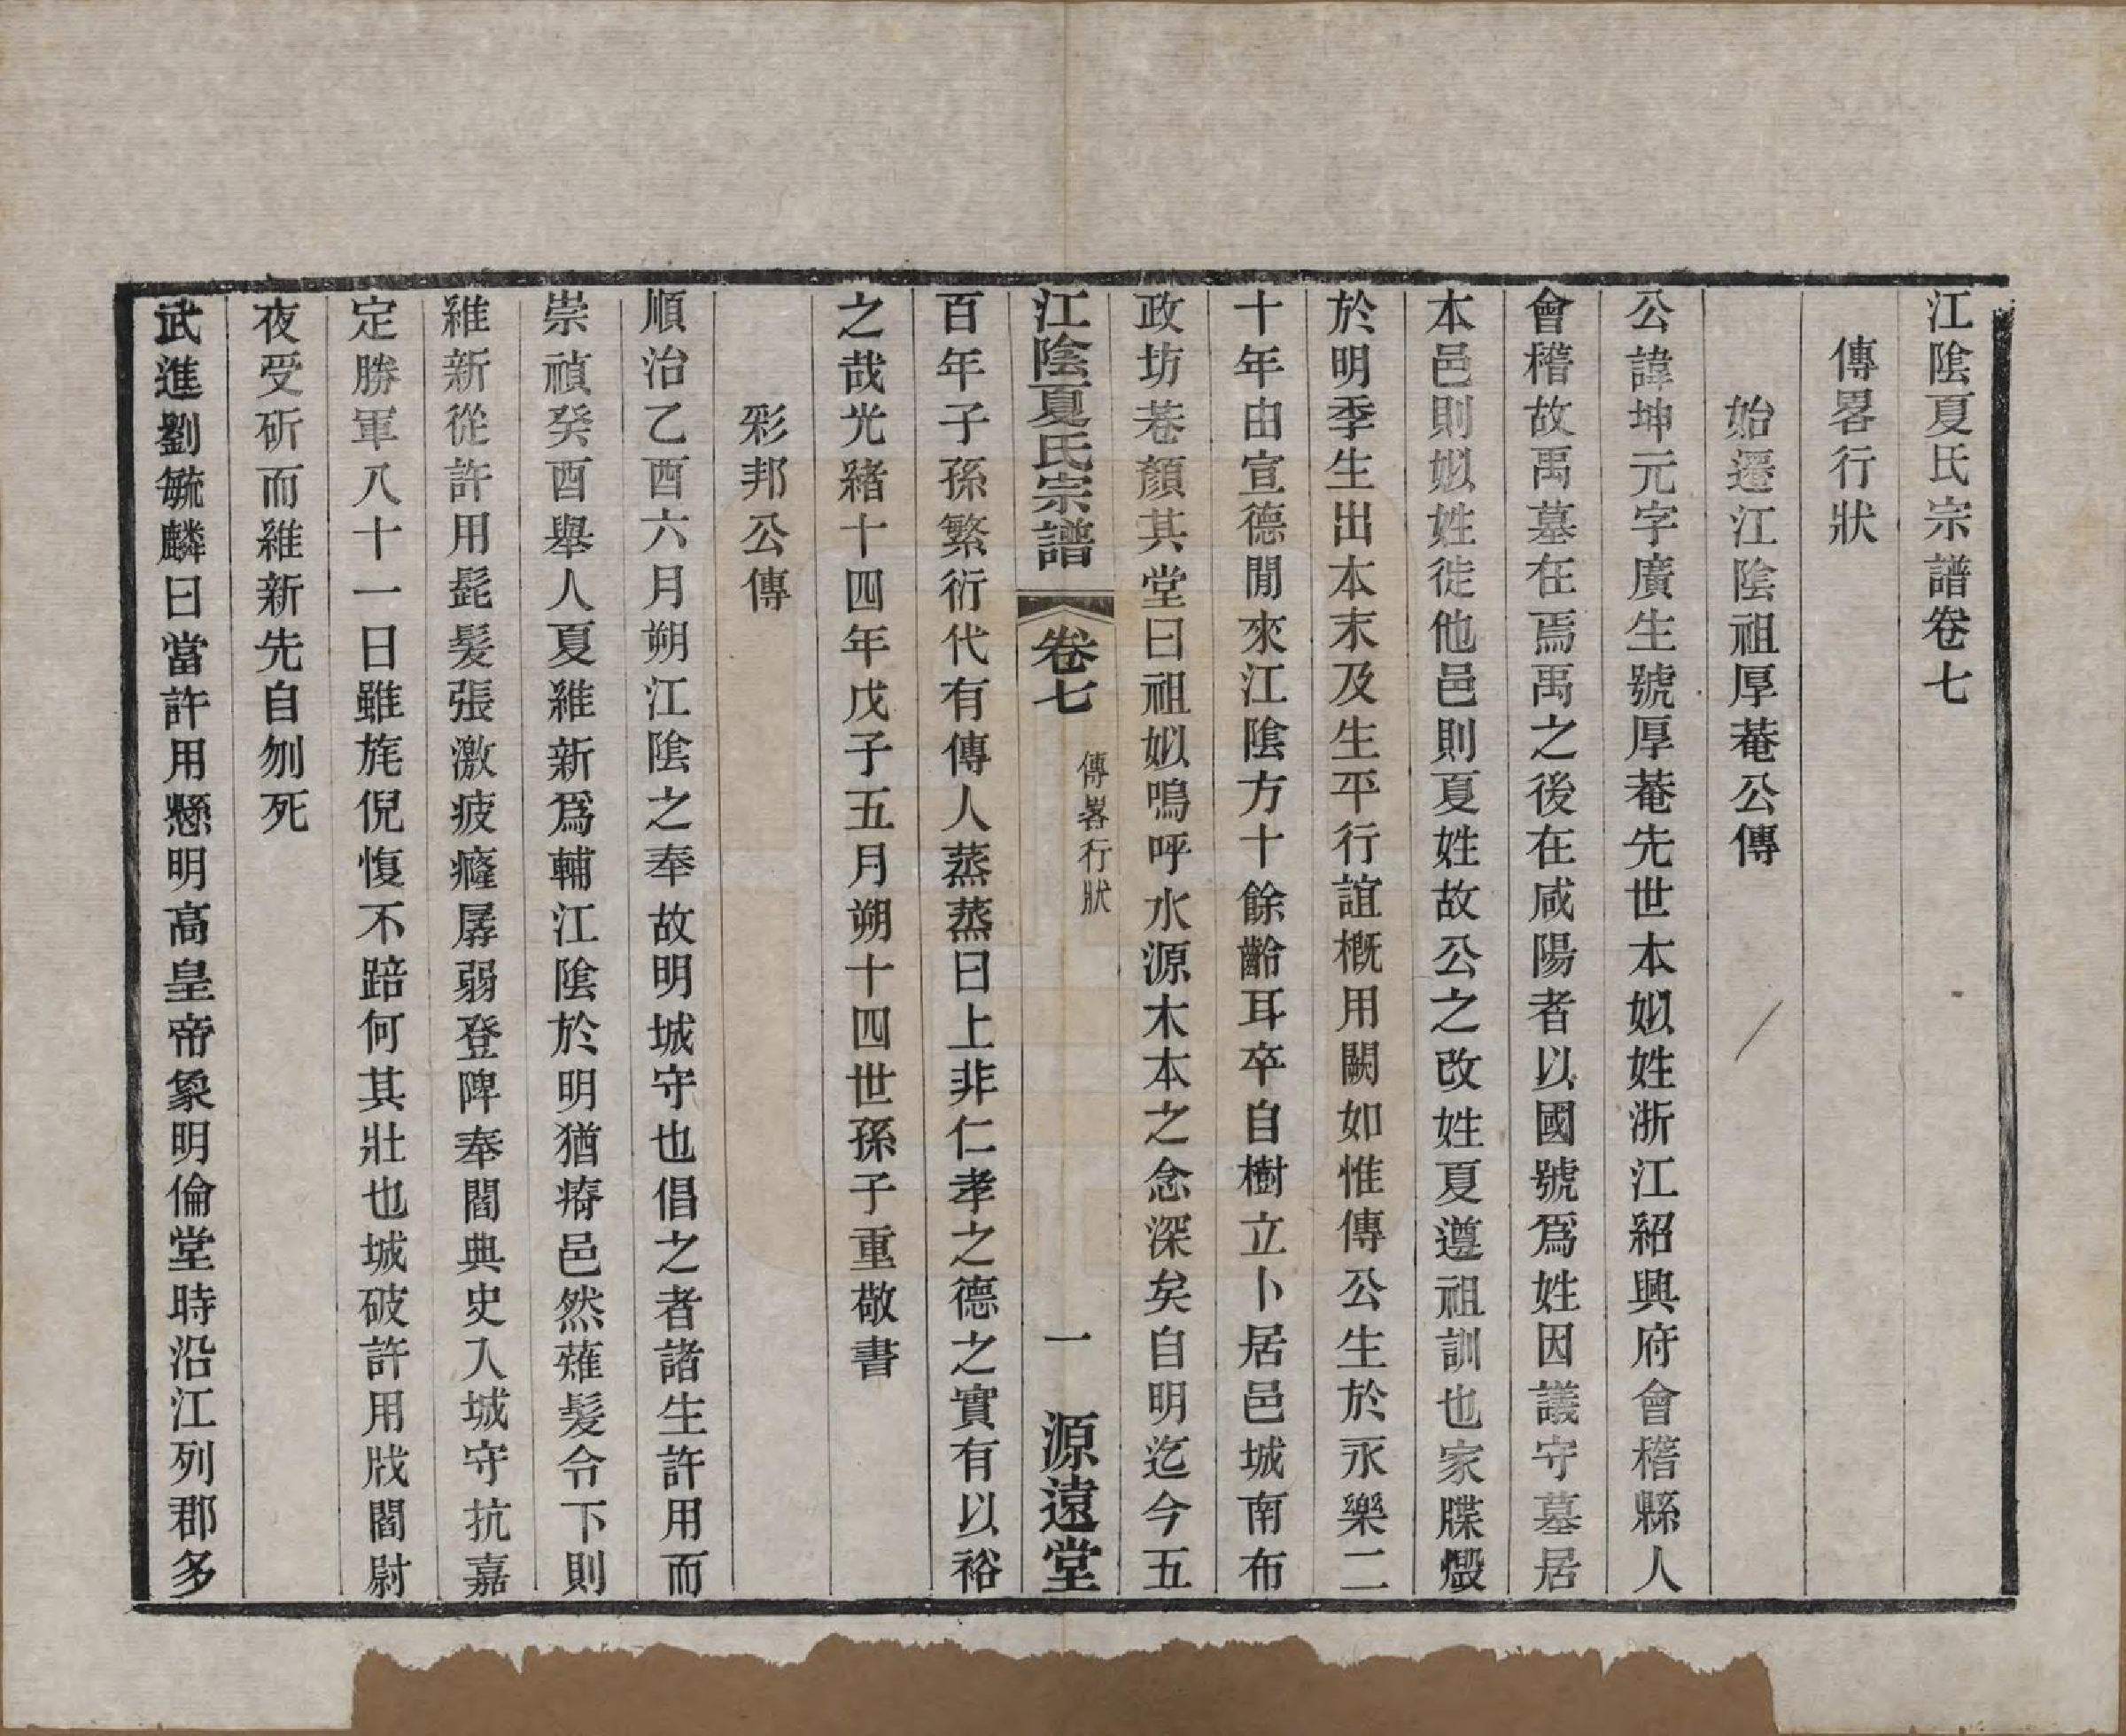 江陰夏氏宗譜卷七
傳畧行狀
始遷江陰祖厚菴公傳
公諱坤元字廣生號厚菴先世本姒姓浙江紹興府會稽縣人
會稽故禹墓在焉禹之後在咸陽者以國號爲姓因議守墓居
本邑則姒姓徙他邑則夏姓故公之改姓夏遵祖訓也家牒燬
於明季生出本末及生平行誼槪用闕如惟傳公生於永樂二
十年由宣德閒來江陰方十餘齡耳卒自樹立卜居邑城南布
政坊巷顏其堂曰祖姒嗚呼水源木本之念深矣自明迄今五
江陰夏氏宗譜 卷七 傳畧行狀 一 源遠堂
百年子孫繁衍代有傳人蒸蒸日上非仁孝之德之實有以裕
之哉光緖十四年戊子五月朔十四世孫子重敬書
彩邦公傳
順治乙酉六月朔江陰之奉故明城守也倡之者諸生許用而
崇禎癸酉舉人夏維新爲輔江陰於明猶瘠邑然薙髮令下則
維新從許用髭髮張激疲癃孱弱登陴奉閻典史入城守抗嘉
定勝軍八十一日雖旄倪愎不踣何其壯也城破許用戕閻尉
夜受斫而維新先自刎死
武進劉毓麟曰當許用懸明高皇帝象明倫堂時沿江列郡多